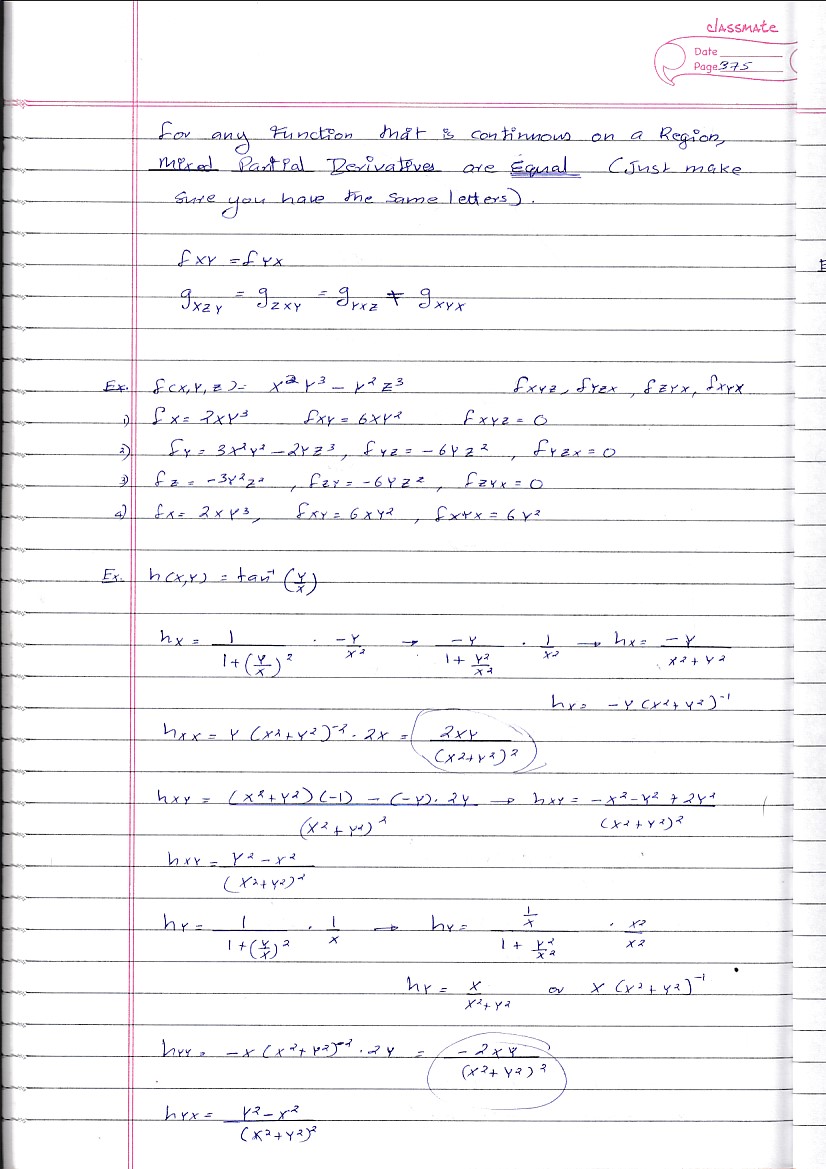 classmate
Date
Page 375
for any Function that is continuous on a Region,
Mixed Partial Derivatives are Equal (Just make
Sure you have the same letters).
fxy = fyx
gxzy = gzxy = gyxz ≠ gxyx
Ex. f(x,y,z) = x²y³ - y²z³ fxyz, fyzx, fzyx, fxyx
1) fx = 2xy³ fxy = 6xy² fxyz = 0
2) fy = 3x²y² - 2yz³, fyz = -6yz², fyzx = 0
3) fz = -3y²z², fzy = -6yz², fzyx = 0
4) fx = 2xy³, fxy = 6xy², fxyx = 6y²
Ex. h(x,y) = tan⁻¹ (y/x)
hx = 1/(1+(y/x)²) · -y/x² → -y/(1+y²/x²) · 1/x² → hx = -y/(x²+y²)
hx = -y(x²+y²)⁻¹
hxx = y(x²+y²)⁻² · 2x = 2xy/(x²+y²)²
hxy = ((x²+y²)(-1) - (-y)·2y)/(x²+y²)² → hxy = (-x²-y²+2y²)/(x²+y²)²
hxy = (y²-x²)/(x²+y²)²
hy = 1/(1+(y/x)²) · 1/x → hy = (1/x)/(1+y²/x²) · x²/x²
hy = x/(x²+y²) or x(x²+y²)⁻¹
hyy = -x(x²+y²)⁻² · 2y = -2xy/(x²+y²)²
hyx = (y²-x²)/(x²+y²)²